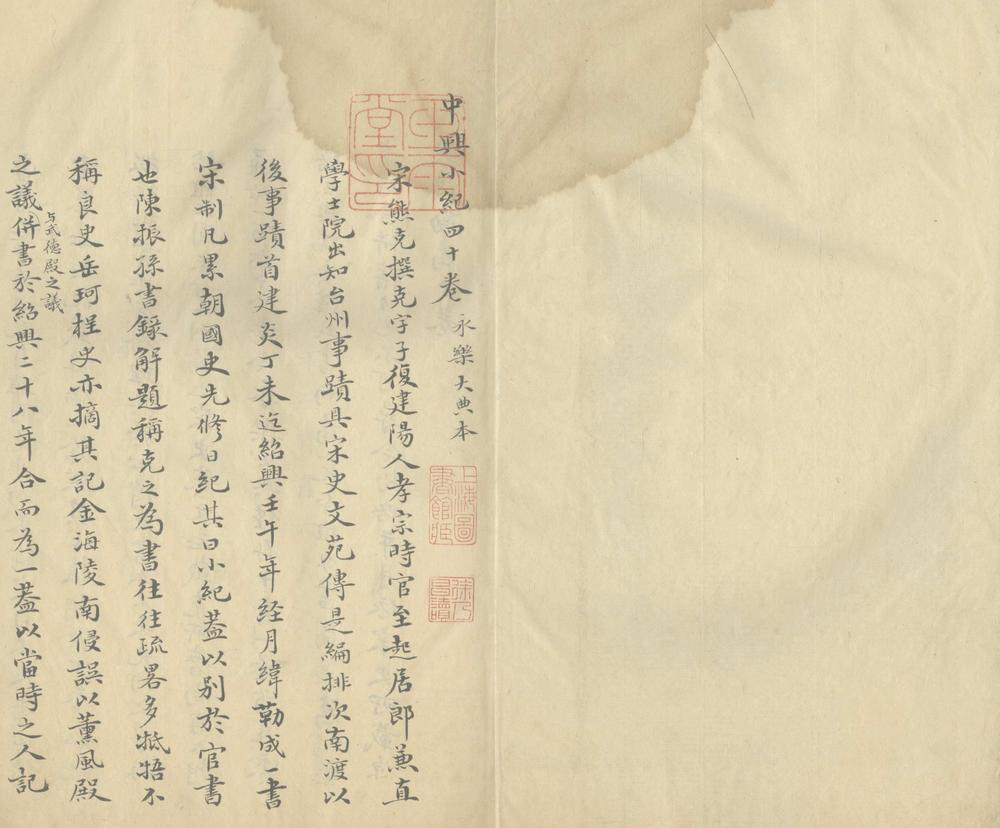 中興小紀四十卷 永樂大典本
宋熊克撰克字子復建陽人孝宗時官至起居郎兼直
學士院出知台州事蹟具宋史文苑傳是編排次南渡以
後事蹟首建炎丁未迄紹興壬午年経月緯勒成一書
宋制凡累朝國史先修日紀其曰小紀葢以别於官書
也陳振孫書錄解題稱克之為書往往疏畧多牴牾不
稱良史岳珂桯史亦摘其記金海陵南侵誤以薰風殿
之議與武德殿之議併書於紹興二十八年合而為一葢以當時之人記
上海圖書館藏
徐乃昌讀